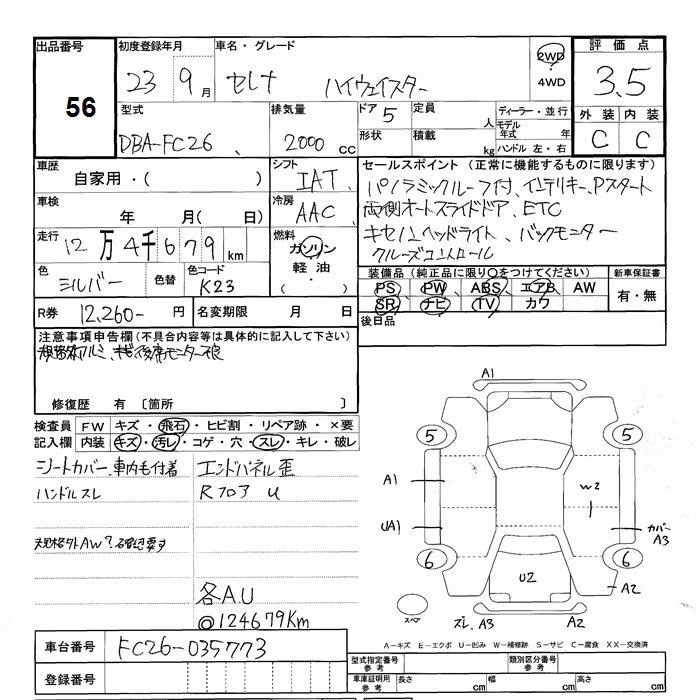 出品番号 初度登録年月 車名・グレード 評価点
56 23 9月 セレナ ハイウェイスター 2WD 4WD 3.5
型式 排気量 ドア 5 定員 人 ディーラー・並行 外装 内装
DBA-FC26 2000 cc 形状 積載 kg モデル年式 年 ハンドル 左・右 C C
車歴 シフト セールスポイント (正常に機能するものに限ります)
自家用・( ) IAT パノラミックルーフ付、インテリキー、Pスタート
車検 冷房 両側オートスライドドア、ETC
年 月( 日) AAC キセノンヘッドライト、バックモニター
走行 燃料 クルーズコントロール
12万4千679km ガソリン 軽油 ・( )
色 シルバー 色替 色コード K23
装備品 (純正品に限り○をつけてください) 新車保証書
PS PW ABS エアB AW 有・無
SR ナビ TV カワ
R券 12,260- 円 名変期限 月 日
後日品
注意事項申告欄(不具合内容等は具体的に記入して下さい)
修復歴 有 〔箇所 〕
検査員 FW キズ・飛石・ヒビ割・リペア跡・×要
記入欄 内装 キズ・汚レ・コゲ・穴・スレ・キレ・破レ
シートカバー、車内も付着 エンドパネル歪
ハンドルスレ Rフロア U
規格外AW?確認要す
各A.U
@124679Km
A1
5 5
A1 W2
UA1 カバー A3
6 6
U2 A2
スペア スレ、A3 A2
A-キズ E-エクボ U-凹み W-補修跡 S-サビ C-腐食 XX-交換済
車台番号 FC26-035773
型式指定番号 参考 類別区分番号 参考
登録番号 車庫証明用 参考 長さ cm 幅 cm 高さ cm